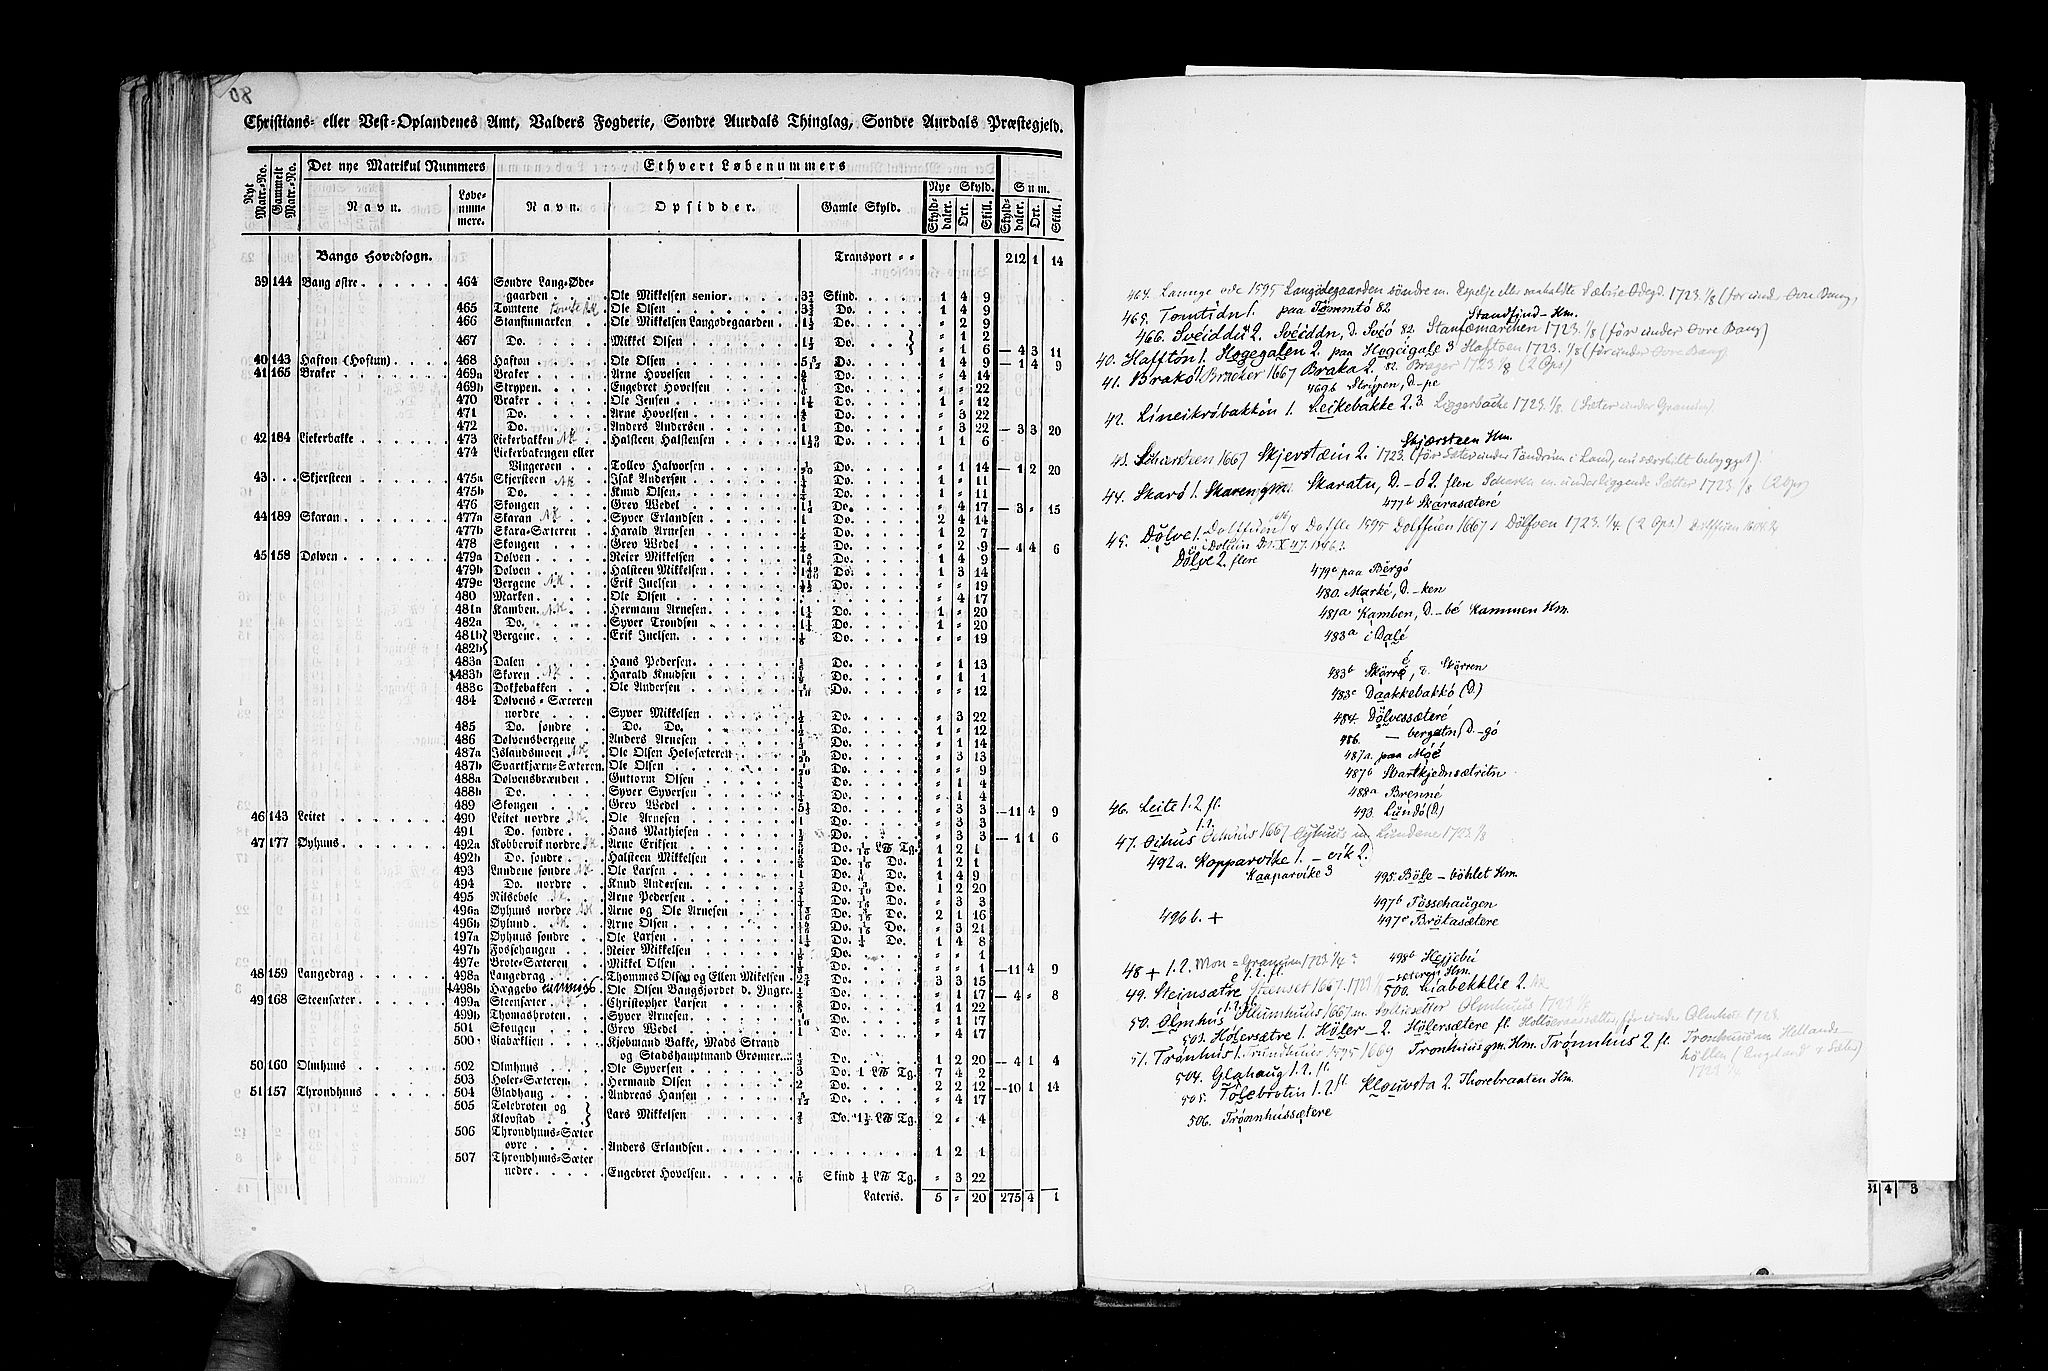 80
Christians- eller Vest-Oplandenes Amt, Valders Fogderie, Søndre Aurdals Thinglag, Søndre Aurdals Præstegjeld.
Nyt Matr.-No.
Gammelt Matr.-No.
Det nye Matrikul Nummers
Ethvert Løbenummers
Navn.
Løbenummere.
Navn.
Opsidder.
Gamle Skyld.
Nye Skyld.
Sum.
Skylddaler. Ort. Skill. Skylddaler. Ort. Skill.
Bangs Hovedsogn. Transport 212 1 14
39 144 Bang østre 464 Søndre Lang-Ødegaarden Ole Mikkelsen senior Skind 1 4 9
465 Tomtene Ole Olsen Do. 1 4 9
466 Stansinmarken Ole Mikkelsen Langødegaarden Do. " 2 9
467 Do. Mikkel Olsen Do. " 1 2
" 1 6 — 4 3 11
40 143 Hafton (Hoftun) 468 Hafton Ole Olsen Do. 1 4 9 — 1 4 9
41 165 Braker 469a Braker Arne Hovelsen Do. " 4 14
469b Strypen Engebret Hovelsen Do. " " 22
470 Braker Ole Jensen Do. 1 " 12
471 Do. Arne Hovelsen Do. " 3 22
472 Do. Anders Andersen Do. " 3 22 — 3 3 20
42 184 Liekerbakke 473 Liekerbakken Halsteen Halstensen Do. 1 1 6
474 Liekerbakengen eller Vingerøen Tollev Halvorsen Do. " 1 14 — 1 2 20
43 Skjersteen 475a Skjersteen Isak Andersen Do. 1 " 11
475b Do. Knud Olsen Do. 1 " 11
476 Skougen Grev Wedel Do. " 4 17 — 3 " 15
44 189 Skaran 477a Skaran Syver Erlandsen Do. 2 4 14
477b Skara-Sæteren Harald Arnesen Do. 1 2 7
478 Skougen Grev Wedel Do. " 2 9 — 4 4 6
45 158 Dølven 479a Dølven Reier Mikkelsen Do. 1 4 9
479b Dølven Halsteen Mikkelsen Do. 1 3 14
479c Bergene Erik Juelsen Do. " " 19
480 Marken Ole Olsen " 4 17
481a Kamben Hermann Arnesen Do. 1 " 20
482a Do. Syver Trondsen Do. 1 " 20
481b Bergene Erik Juelsen Do. " " 19
482b
483a Dalen Hans Pedersen Do. " 1 13
483b Skøren Harald Knudsen Do. " 1 1
483c Dokkebakken Ole Andersen Do. " " 12
484 Dølvens-Sæteren nordre Syver Mikkelsen Do. " 3 22
485 Do. søndre Do. Do. Do. 1 " 12
486 Dølvensbergene Anders Arnesen Do. " 1 14
487a Islandsmoen Ole Olsen Holosæteren Do. " 3 13
487b Svartkjærn-Sæteren Ole Olsen Do. " " 9
488a Dølvensbrænden Guttorm Olsen Do. " 1 4
488b Do. Syver Syversen Do. " 1 4
489 Skougen Grev Wedel Do. " 3 3 — 11 4 9
46 143 Leitet 490 Leitet nordre Ole Arnesen Do. " 3 3
491 Do. søndre Hans Mathiesen Do. " 3 3 — 1 1 6
47 177 Øyhuus 492a Kobbervik nordre Arne Eriksen Do. 1 2 1
492b Do. søndre Halsteen Mikkelsen Do. 1 2 1
493 Lundene søndre Ole Larsen Do. 1 4 9
494 Do. nordre Knud Andersen Do. 1 2 20
495 Nilsebøle Arne Pedersen Do. " 3 3
496a Øyhuus nordre Arne og Ole Arnesen Do. 2 1 16
496b Øylund Arne Olsen Do. " 3 21
197a Øyhuus søndre Ole Larsen Do. 1 4 8
497b Fossehaugen Reier Mikkelsen Do. " " 1
497c Brote-Sæteren Mikkel Olsen Do. " " 1 — 11 4 9
48 159 Langedrag 498a Langedrag Thommes Olsen og Ellen Mikelsen Do. 3 3 15
498b Hæggebø Ole Olsen Bangsjordet d. Yngre Do. " 1 17 — 4 " 8
49 168 Steensæter 499a Steensæter Christopher Larsen Do. 1 1 22
499b Thomasbroten Syver Arnesen Do. " 1 17
501 Skougen Grev Wedel Do. " 4 17
500 Liabæklien Kjøbmand Bakke, Mads Strand og Stadshauptmand Grønner Do. 1 2 20 — 4 1 4
50 160 Olmhuus 502 Olmhuus Ole Syversen Do. 7 4 2
503 Høler-Sæteren Hermand Olsen Do. 2 2 12 — 10 1 14
51 157 Throndhuus 504 Gladhaug Andreas Hansen Do. " 4 17
505 Tolebroten og Klovstad Lars Mikkelsen Do. 2 " 4
506 Throndhuus-Sæter øvre Anders Erlandsen 1 2 1
507 Throndhuus-Sæter nedre Engebret Hovelsen Skind " 3 22
Lateris. 5 " 20 275 4 1
464. Launge øde 1595
465. Tomtidn 1. paa Tömmtö 82
Standfind- Hm.
466. Sveiddu 2. Sveiddn, d. Sveö 82. Stansemarchen 1723. 1/8 (før under Øvre Bang)
40. Hafftön 1. Hogegalen 2. paa Hogeigale 3 Haftven 1723. 1/8 (før under Øvre Bang)
41. Brakö 1 Bracher 1667 Braka 2. 82. Brager 1723. 1/8 (2 Ops)
469b Strýpen, d-pe
42. Lineikröbakkön 1. Leikebakke 2.3. Liggerbache 1723. 1/8. (Sæter under Granum)
Skjærsteen Hm.
43. Scharsteen 1667 Skjerstæin 2. 1723. (før Sæter under Tøndrum i Land, nu særskilt bebygget).
44. Skarö 1. Skaren gm. Skaratn, D. -ö 2. flere
477b Skárasæteré
45. Dölve 1. Dolffuen 1667 Dölfven 1723. 1/4. (2 Ops.)
Dölve 2. flere
479c paa Bergó
480. Marké, d. -ken
481a Kamben, d. -bé Kammen Hm.
483a i Dalé
483b Skörré, d. Skörren
483c Daakkebakkö (d.)
484. Dölvessæteré
486. — bergatn, d. -gó
487a. paa Móé
487b Svartkjednsætritn
488a Brenné
46. Leite 1.2. fl.
493. Lundö (d.)
47. Öihus Oehuus 1667 Øyhuus m Lundene 1723. 1/8
492a. Kopparvike 1. -vik 2.
Kaaparvike 3
495. Böle — böhlet Hm.
497b Fossehaugen
496b. +
497c Brótasætere
48 + 1.2.
498b Hejjebö
-seteren Hm.
49. Steinsætre 1.2. fl. Steenset 1667. 1723. 1/4
500. Liabekklie 2.
50. Olmhús 1.2. fl. Olmhuus 1723 1/2
503. Hölersætre 1. Höler — 2. Hölersætere fl.
51. Trönhús 1. Trundhuus 1595 1669 Tronhuus gm. Hm. Trönnhús 2 fl.
504. Glahaug 1.2. fl.
505. Tölebrotin 1.2. fl. Klouvsta 2. Thorebraaten Hm.
506. Trönnhússætere
31 4 3